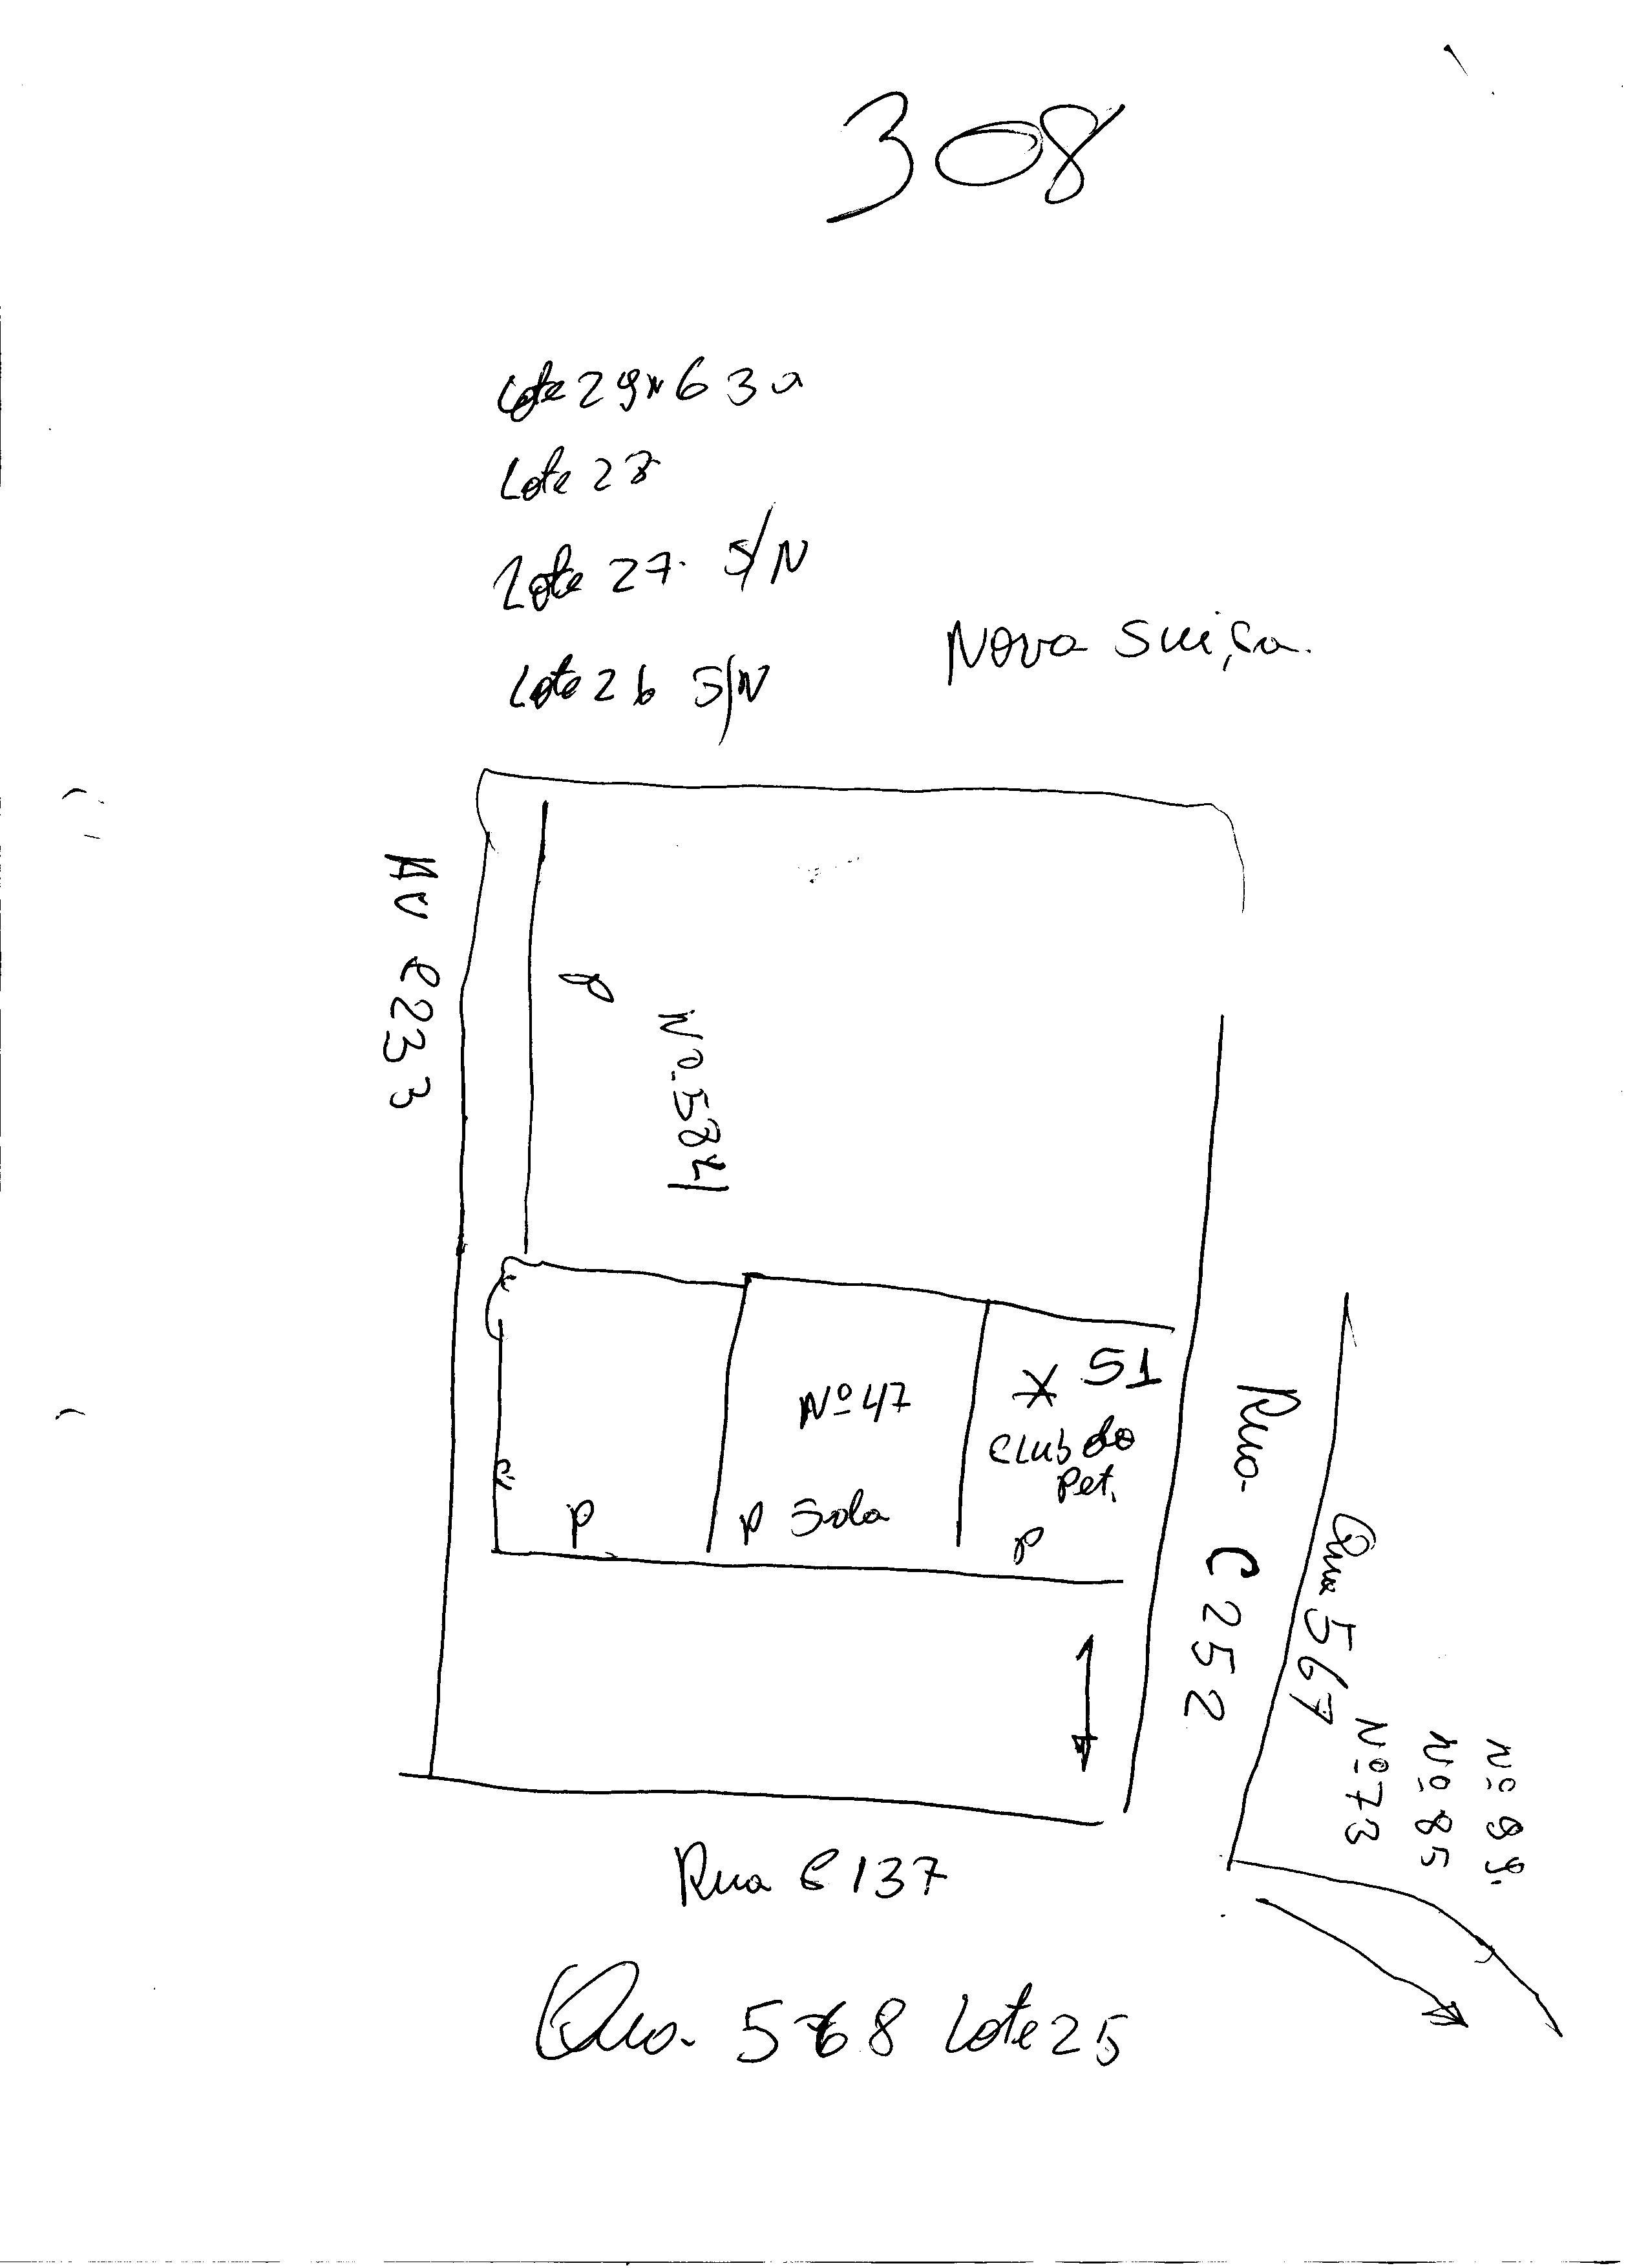 308
Lote 29 N 630
Lote 28
Lote 27. S/N
Lote 26 S/N
Nova Suiça.
AV C233
P
Nº 584
Nº 47
P Sola
P
51
Club do
Pet.
P
Rua C252
Qua 567
Nº 73
Nº 85
Nº 89.
Rua C137
Qua. 568 Lote 25